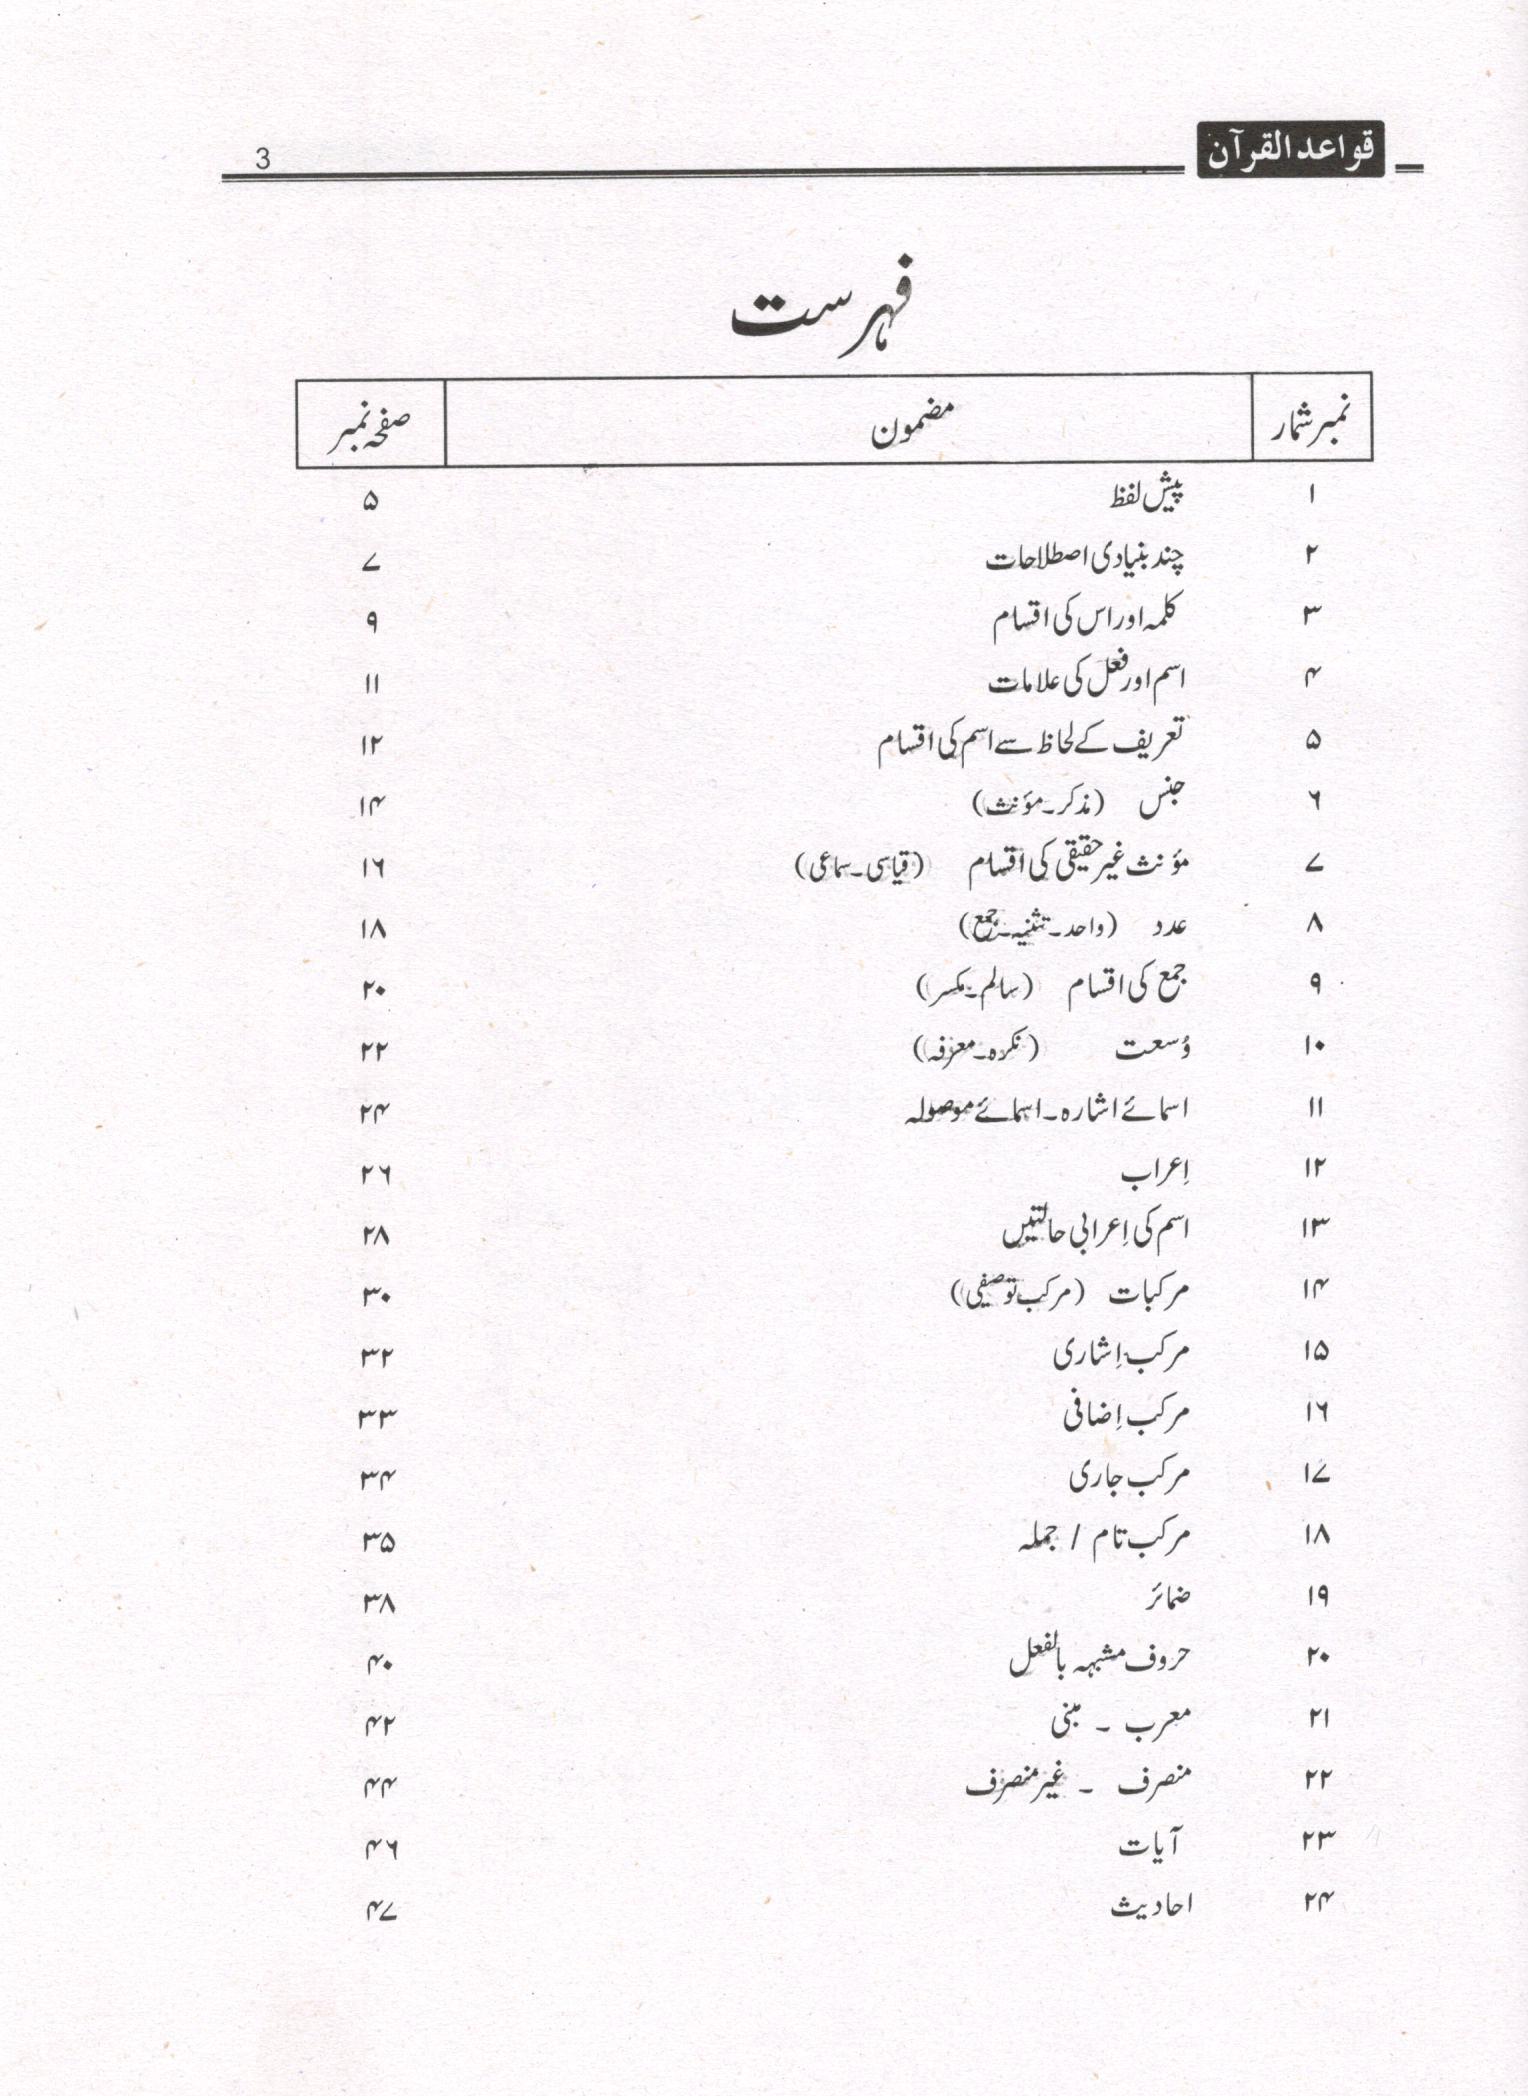 قواعد القرآن 3
فہرست
نمبر شمار مضمون صفحہ نمبر
۱ پیش لفظ ۵
۲ چند بنیادی اصطلاحات ۷
۳ کلمہ اور اس کی اقسام ۹
۴ اسم اور فعل کی علامات ۱۱
۵ تعریف کے لحاظ سے اسم کی اقسام ۱۲
۶ جنس (مذکر۔مؤنث) ۱۴
۷ مؤنث غیر حقیقی کی اقسام (قیاسی۔سماعی) ۱۶
۸ عدد (واحد۔تثنیہ۔جمع) ۱۸
۹ جمع کی اقسام (سالم۔مکسر) ۲۰
۱۰ وُسعت (نکرہ۔معرفہ) ۲۲
۱۱ اسمائے اشارہ۔اسمائے موصولہ ۲۴
۱۲ اِعراب ۲۶
۱۳ اسم کی اِعرابی حالتیں ۲۸
۱۴ مرکبات (مرکب توصیفی) ۳۰
۱۵ مرکب اِشاری ۳۲
۱۶ مرکب اِضافی ۳۳
۱۷ مرکب جاری ۳۴
۱۸ مرکب تام / جملہ ۳۵
۱۹ ضمائر ۳۸
۲۰ حروف مشبہہ بالفعل ۴۰
۲۱ معرب ۔ مبنی ۴۲
۲۲ منصرف ۔ غیر منصرف ۴۴
۲۳ آیات ۴۶
۲۴ احادیث ۴۷